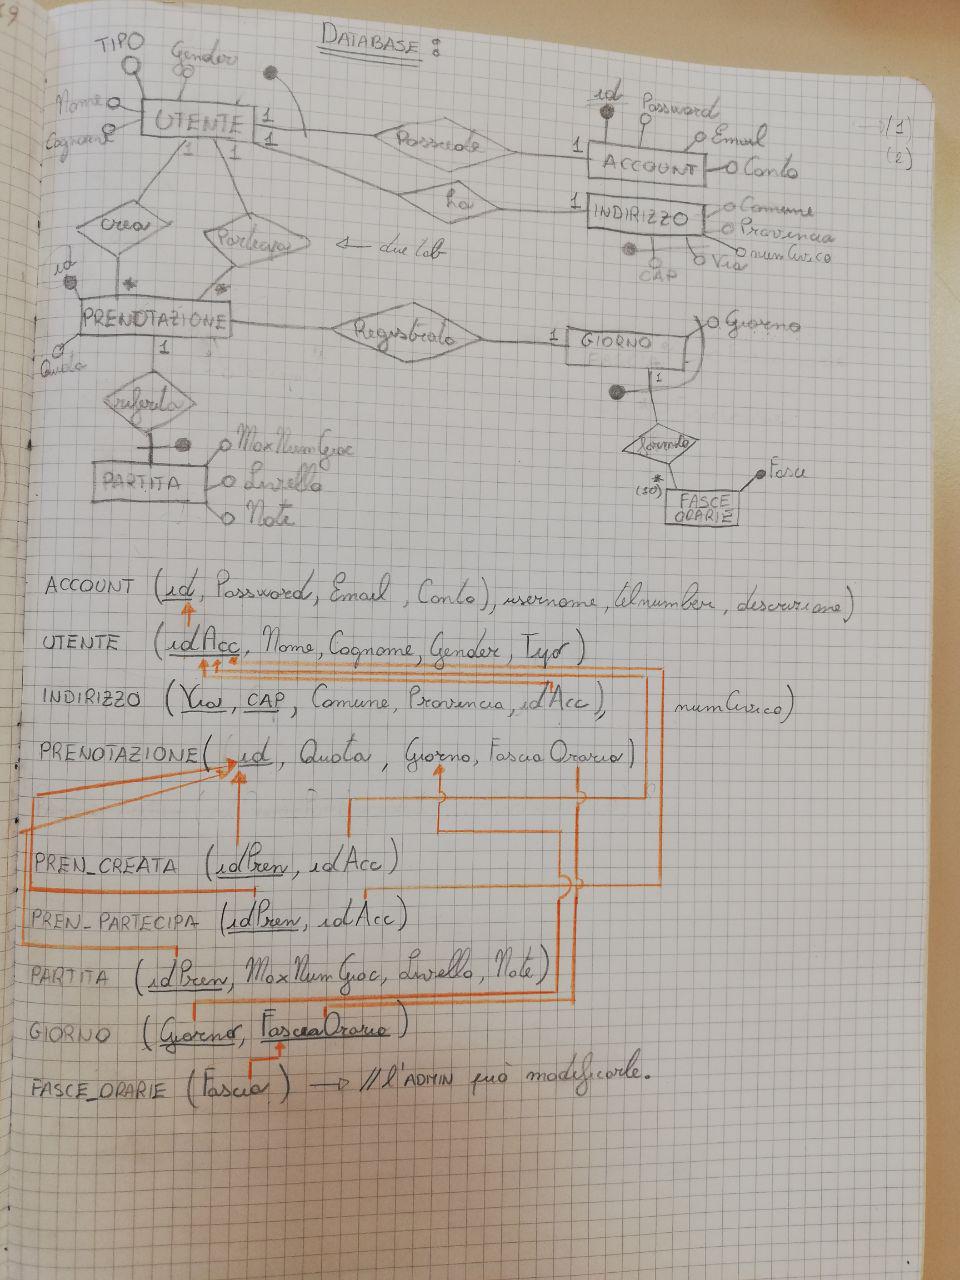 DATABASE:
TIPO
Gender
Nome
Cognome
UTENTE
1
1
1
1
Possiede
1
id
Password
Email
Conto
ACCOUNT
(1)
(2)
ha
1
INDIRIZZO
Comune
Provincia
numCivico
Via
CAP
crea
Partecipa
← due tab
*
*
id
PRENOTAZIONE
Quota
1
Registrato
1
GIORNO
Giorno
1
riferita
PARTITA
MaxNumGioc
Livello
Note
*
(10)
Fasce
FASCE
ORARIE
ACCOUNT (id, Password, Email, Conto), username, telnumber, descrizione)
UTENTE (idAcc, Nome, Cognome, Gender, Tipo)
INDIRIZZO (Via, CAP, Comune, Provincia, idAcc), numCivico)
PRENOTAZIONE (id, Quota, Giorno, FasciaOraria)
PREN_CREATA (idPren, idAcc)
PREN_PARTECIPA (idPren, idAcc)
PARTITA (idPren, MaxNumGioc, Livello, Note)
GIORNO (Giorno, FasciaOraria)
FASCE_ORARIE (Fascia) → // l'ADMIN può modificarle.